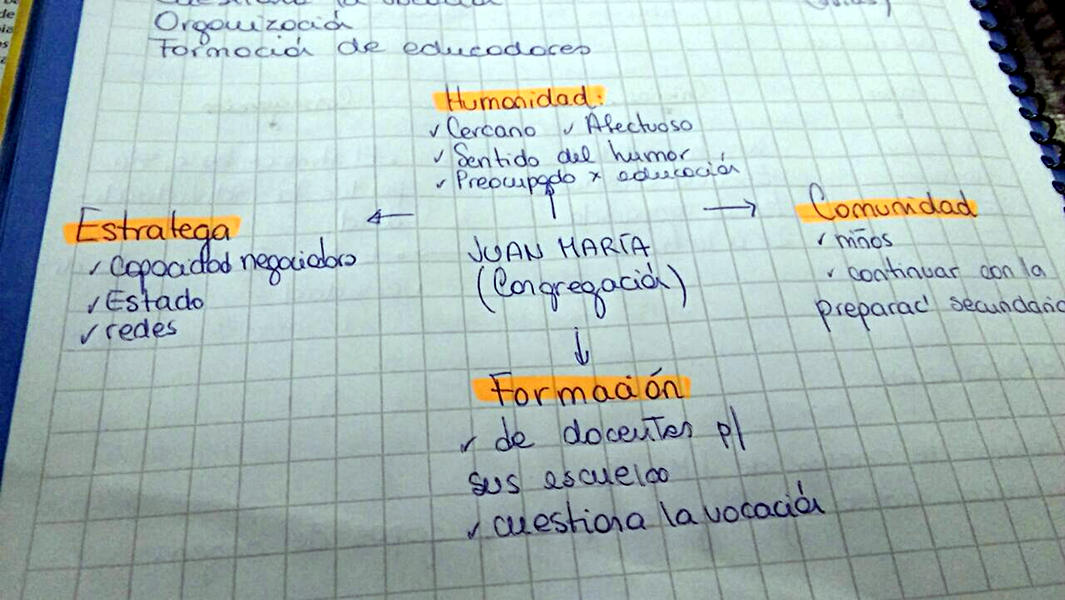 Cuestiona la vocación
Organización
Formación de educadores
Humanidad:
✓ Cercano ✓ Afectuoso
✓ Sentido del humor
✓ Preocupado x educación
Estratega
✓ Capacidad negociadora
✓ Estado
✓ redes
JUAN MARÍA
(Congregación)
Comunidad
✓ niños
✓ continuar con la
preparac' secundaria
Formación
✓ de docentes p/
sus escuelas
✓ cuestiona la vocación